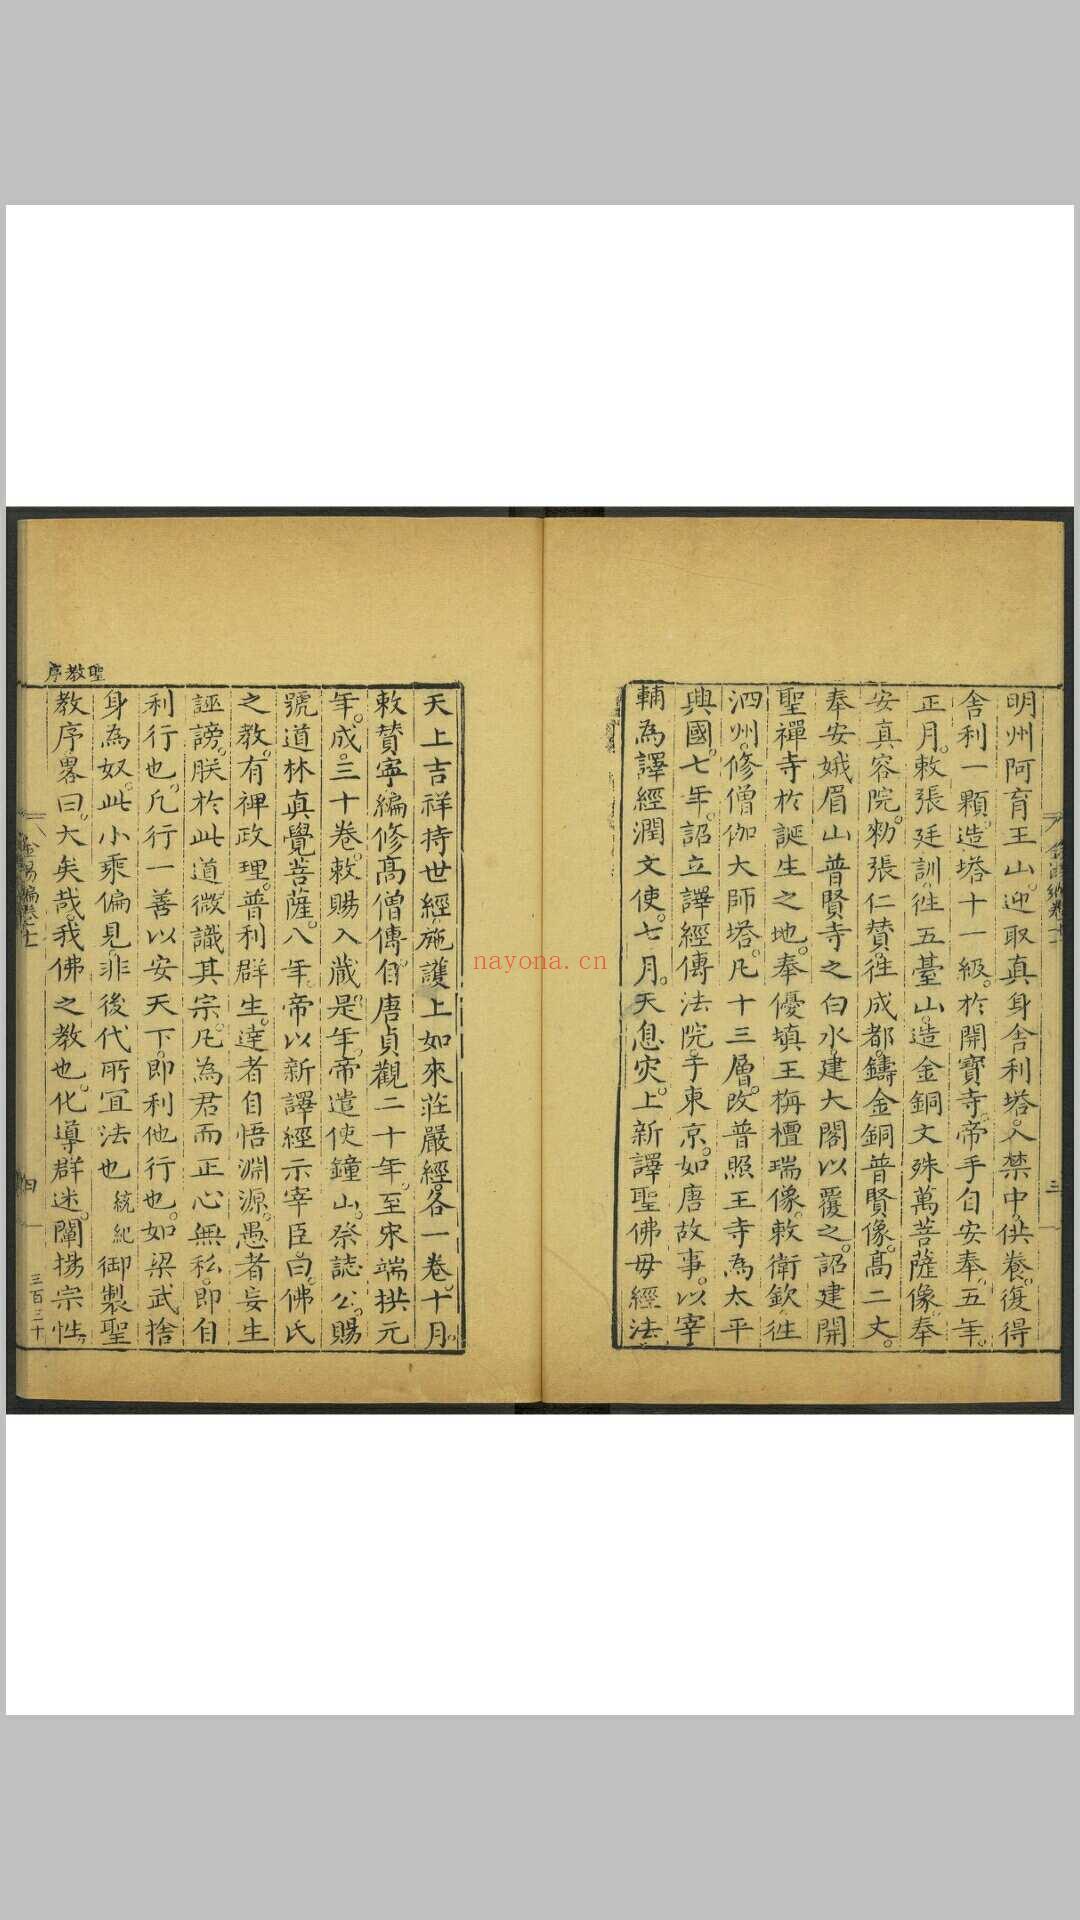 明州阿育王山。迎取真身舍利塔。入禁中。供養。復得
舍利一顆。造塔十一級。於開寶寺。帝手自安奉。五年。
正月。敕張廷訓。徃五臺山。造金銅文殊萬菩薩像。奉
安真容院。勑張仁贊。徃成都。鑄金銅普賢像。高二丈。
奉安峩眉山普賢寺之白水。建大閣以覆之。詔建開
聖禪寺於誕生之地。奉優填王栴檀瑞像。敕衛欽徃
泗州。修僧伽大師塔。凡十三層。改普照王寺為太平
興國。七年。詔立譯經傳法院。于東京。如唐故事。以宰
輔為譯經潤文使。七月。天息灾。上新譯聖佛母經。法
天上吉祥持世經。施護上如來莊嚴經。各一卷。十月。
敕贊寧編修高僧傳。自唐貞觀二十年。至宋端拱元
年。成。三十卷。敕賜入藏。是年。帝遣使鐘山。祭誌公。賜
號道林真覺菩薩。八年。帝以新譯經示宰臣。曰。佛氏
之教。有裨政理。普利群生。達者自悟淵源。愚者妄生
誣謗。朕於此道。微識其宗。凡為君而正心無私。即自
利行也。凡行一善以安天下。即利他行也。如梁武捨
身為奴。此小乘偏見。非後代所宜法也 統紀 御製聖
教序畧曰。大矣哉。我佛之教也。化導群迷。闡揚宗性。
聖教序
三
四
三百三十
nayona.cn